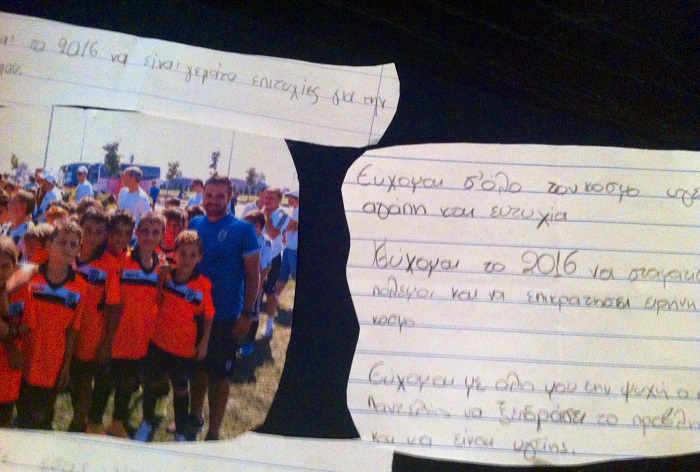 το 2016 να είναι γεμάτο επιτυχίες για την
Ευχομαι σ'όλο τον κοσμο υγε
αγάπη και ευτυχία
Ευχομαι το 2016 να σταματ
πόλεμοι και να επικρατησει ειρήνη
κοσμο
Εύχομαι με όλη μου την ψυχή ο
Παντελής να ξεπεράσει το πρόβλη
και να είναι υγιής.